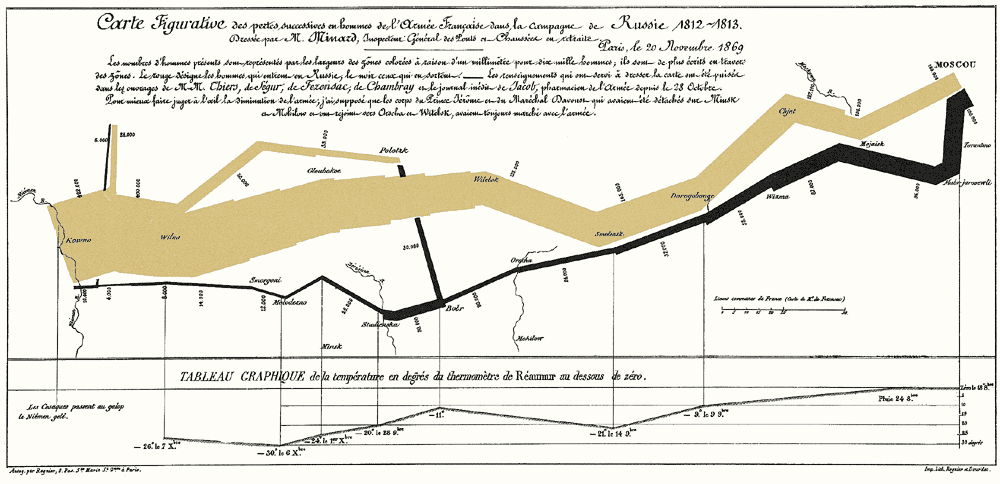 Carte Figurative des pertes successives en hommes de l'Armée Française dans la campagne de Russie 1812-1813.
Dressée par M. Minard, Inspecteur Général des Ponts et Chaussées en retraite.
Paris, le 20 Novembre 1869
Les nombres d'hommes présents sont représentés par les largeurs des zones colorées à raison d'un millimètre pour dix mille hommes; ils sont de plus écrits en travers
des zones. Le rouge désigne les hommes qui entrent en Russie, le noir ceux qui en sortent. — Les renseignements qui ont servi à dresser la carte ont été puisés
dans les ouvrages de M.M. Thiers, de Ségur, de Fezensac, de Chambray et le journal inédit de Jacob, pharmacien de l'Armée depuis le 28 Octobre.
Pour mieux faire juger à l'œil la diminution de l'armée, j'ai supposé que les corps du Prince Jérôme et du Maréchal Davoust qui avaient été détachés sur Minsk
et Mohilow et ont rejoint vers Orscha et Witebsk, avaient toujours marché avec l'armée.
MOSCOU
100.000
Tarantino
Malo-jarosewli
Mojaisk
Chjat
Wizma
Dorogobouge
Smolensk
Witebsk
Polotzk
Gloubokoe
Wilna
Kowno
Niémen R.
6.000
22.000
422.000
400.000
33.000
Orscha
Mohilow
Bobr
Studienska
Minsk
Molodezno
Smorgoni
4.000
8.000
14.000
12.000
Lieues communes de France (Carte de M. de Fezensac)
TABLEAU GRAPHIQUE de la température en degrés du thermomètre de Réaumur au dessous de zéro.
Les Cosaques passent au galop
le Niémen gelé.
Zéro le 18 8.bre
Pluie 24 8.bre
5
10
15
20
25
30 degrés
— 9.° le 9 9.bre
— 21.° le 14 9.bre
— 11.°
— 20.° le 28 9.bre
— 24.° le 1.er X.bre
— 30.° le 6 X.bre
— 26.° le 7 X.bre
Autog. par Regnier, 8. Pas. S.te Marie S.t G.ain à Paris.
Imp. Lith. Regnier et Dourdet.